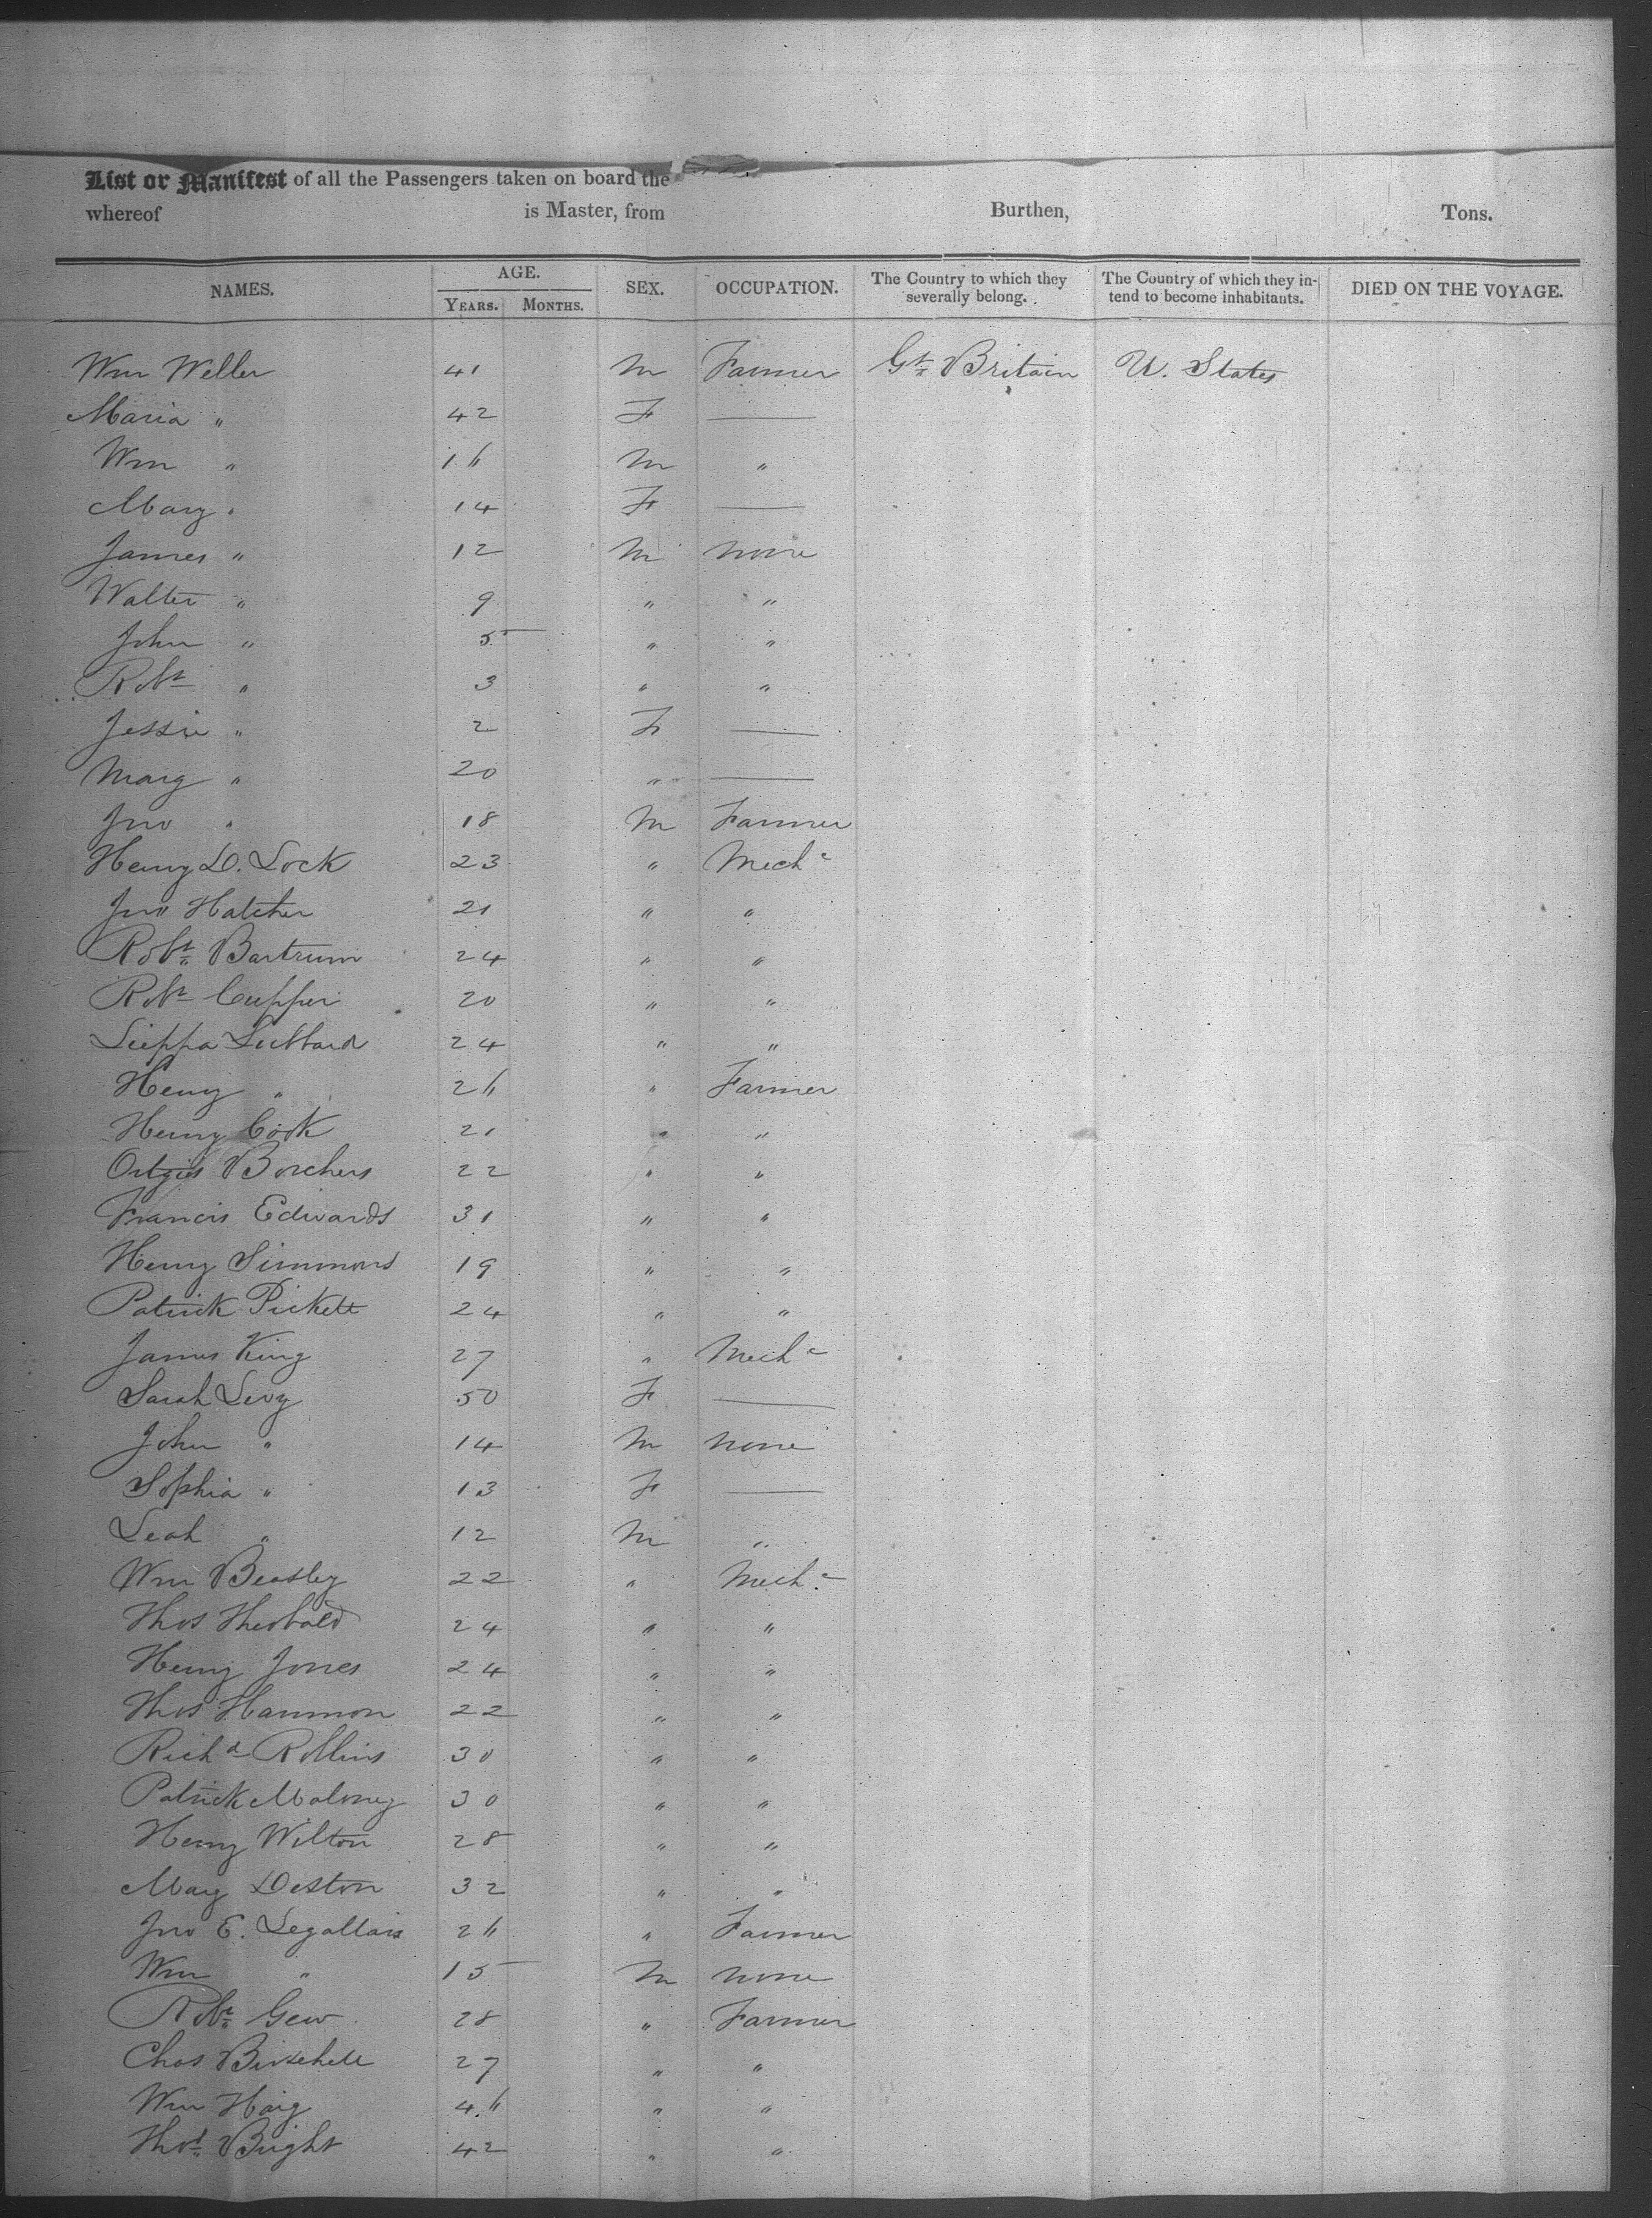 List or Manifest of all the Passengers taken on board the
whereof is Master, from Burthen, Tons.
NAMES. AGE. YEARS. MONTHS. SEX. OCCUPATION. The Country to which they severally belong. The Country of which they intend to become inhabitants. DIED ON THE VOYAGE.
Wm Weller 41 M Farmer Gt Britain U. States
Maria " 42 F —
Wm " 16 M "
Mary " 14 F —
James " 12 M none
Walter " 9 " "
John " 5 " "
Robt " 3 " "
Jessie " 2 F —
Marg " 20 " —
Jno " 18 M Farmer
Henry D. Lock 23 " Mechc
Jno Hatcher 21 " "
Robt Bartrum 24 " "
Robt Cupper 20 " "
Lubbard 24 " "
Henry " 26 " Farmer
Henry Cook 21 " "
Ortgies Borchers 22 " "
Francis Edwards 31 " "
Henry Simmons 19 " "
Patrick Pickett 24 " "
James King 27 " Mechc
Sarah Levy 50 F —
John " 14 M none
Sophia " 13 F —
Leah " 12 M "
Wm Beasley 22 " Mechc
Thos Theobald 24 " "
Henry Jones 24 " "
Thos Hammon 22 " "
Richd Rollins 30 " "
Patrick Maloney 30 " "
Henry Wilton 28 " "
May Deston 32 " "
Jno E. Legallais 26 " Farmer
Wm " 15 M none
Robt Gew 28 " Farmer
Chas Birchell 27 " "
Wm Haig 46 " "
Thos Bright 42 " "